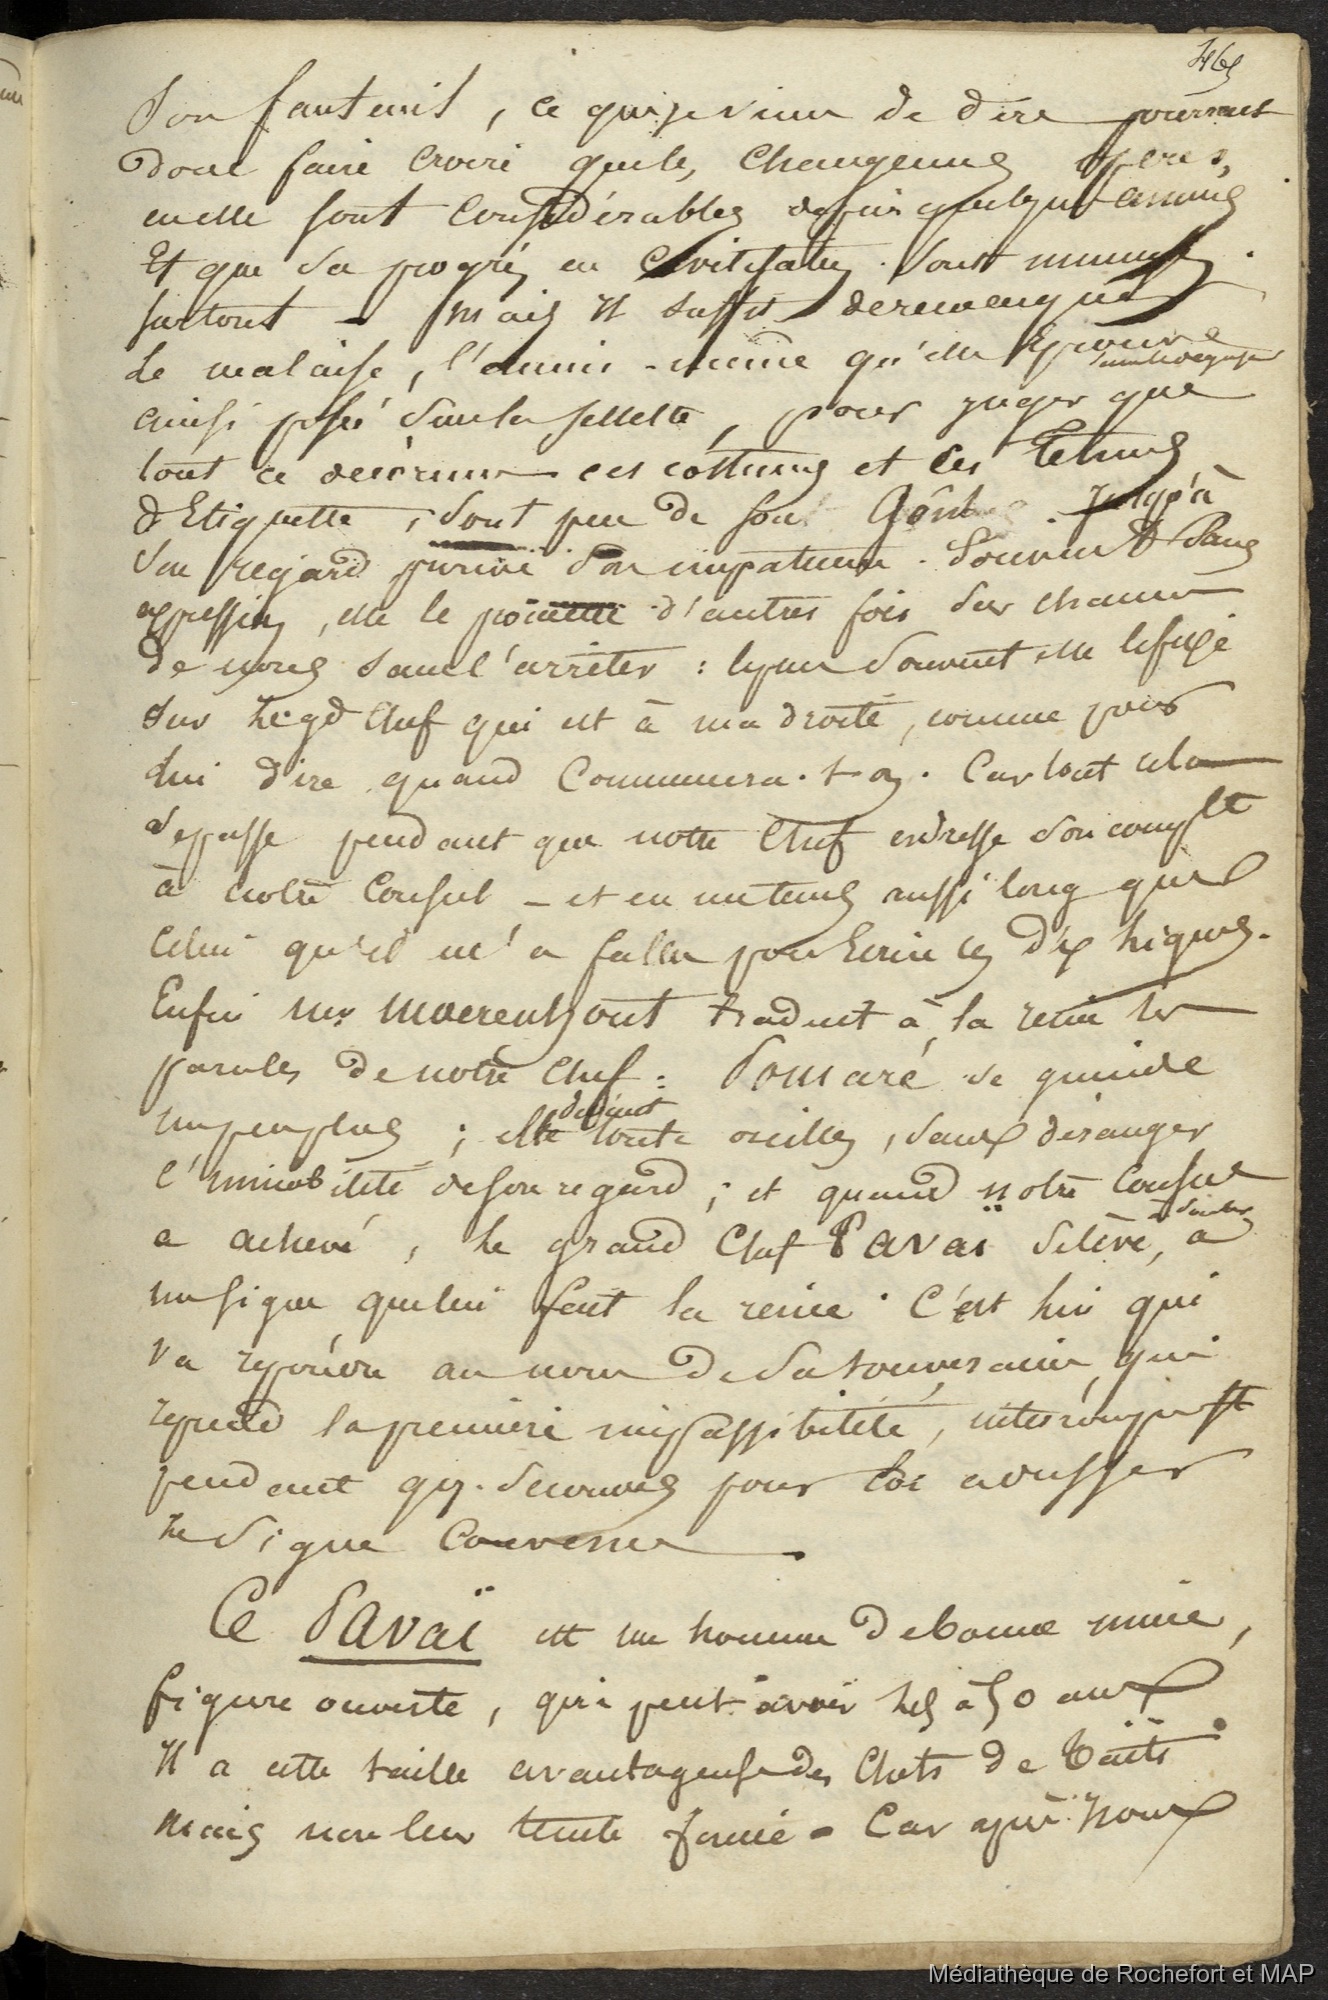 465
son fauteuil, ce que je viens de dire pourrait
donc faire croire que les changemens opérés
en elle sont considérables depuis quelques années
Et que ses progrès en civilisation sont
surtout – mais il suffit de remarquer
le malaise, l'ennui même qu'elle éprouve
ainsi posée sur la sellette, pour juger que
tout ce decorum ces costumes et ces tenues
d'Etiquette, sont peu de son Goût. Jusqu'à
son regard son impatience. Souvent sans
expression, elle le d'autres fois sur chacun
de nous sans l'arrêter : le plus souvent elle le fixe
sur le gd chef qui est à ma droite, comme pour
lui dire quand commencera-t-on. Car tout cela
se passe pendant que notre Chef adresse son compte
à notre Consul – et en un tems aussi long que
celui qu'il m'a fallu pour Ecrire ces dix lignes.
Enfin Mr Moerenhout traduit à la reine les
paroles de notre Chef : Pomaré se guinde
un peu plus ; elle devient toute oreilles, sans déranger
l'immobilité de son regard ; et quand notre Consul
a achevé, le grand Chef Pavaï se lève,
un signe que lui fait la reine. C'est lui qui
va répondre au nom de sa souveraine, qui
reprend la première impassibilité, interrompue
pendant qq. secondes pour lui adresser
le signe convenu
Ce Pavaï est un homme de bonne mine,
figure ouverte, qui peut avoir 45 à 50 ans
Il a cette taille avantageuse des Chefs de Taïti
mais non leur teinte foncée – Car après nous